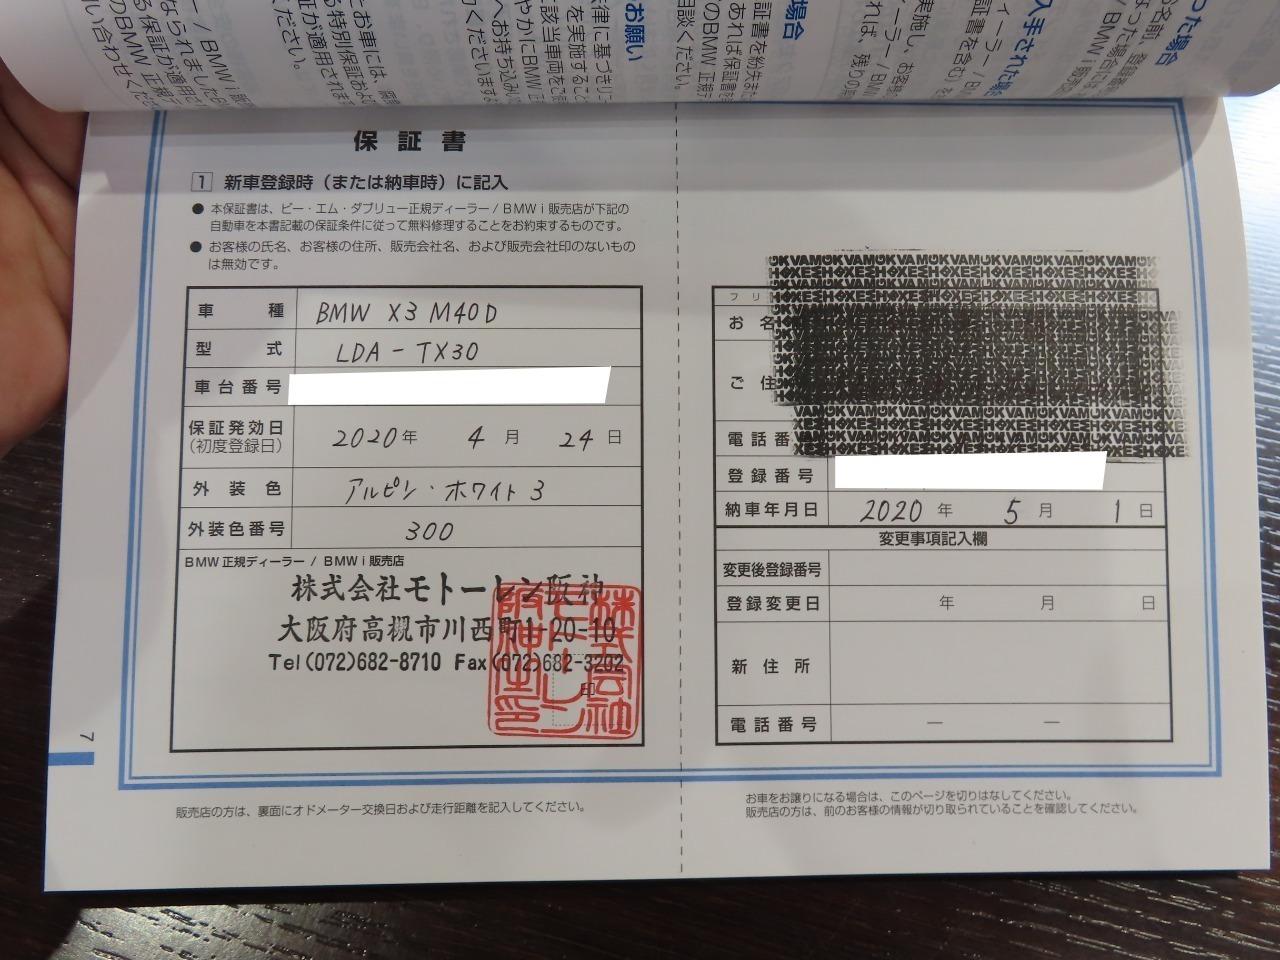 保証書
1 新車登録時（または納車時）に記入
● 本保証書は、ビー・エム・ダブリュー正規ディーラー / BMW i 販売店が下記の
自動車を本書記載の保証条件に従って無料修理することをお約束するものです。
● お客様の氏名、お客様の住所、販売会社名、および販売会社印のないもの
は無効です。
車種 BMW X3 M40D
型式 LDA-TX30
車台番号
保証発効日
(初度登録日) 2020年 4月 24日
外装色 アルピン・ホワイト3
外装色番号 300
BMW正規ディーラー / BMW i 販売店
株式会社モトーレン阪神
大阪府高槻市川西町1-20-10
Tel(072)682-8710 Fax(072)682-3202
印
フリ
お名
ご住
電話番
登録番号
納車年月日 2020年 5月 1日
変更事項記入欄
変更後登録番号
登録変更日 年 月 日
新住所
電話番号 — —
販売店の方は、裏面にオドメーター交換日および走行距離を記入してください。
お車をお譲りになる場合は、このページを切りはなしてください。
販売店の方は、前のお客様の情報が切り取られていることを確認してください。
7